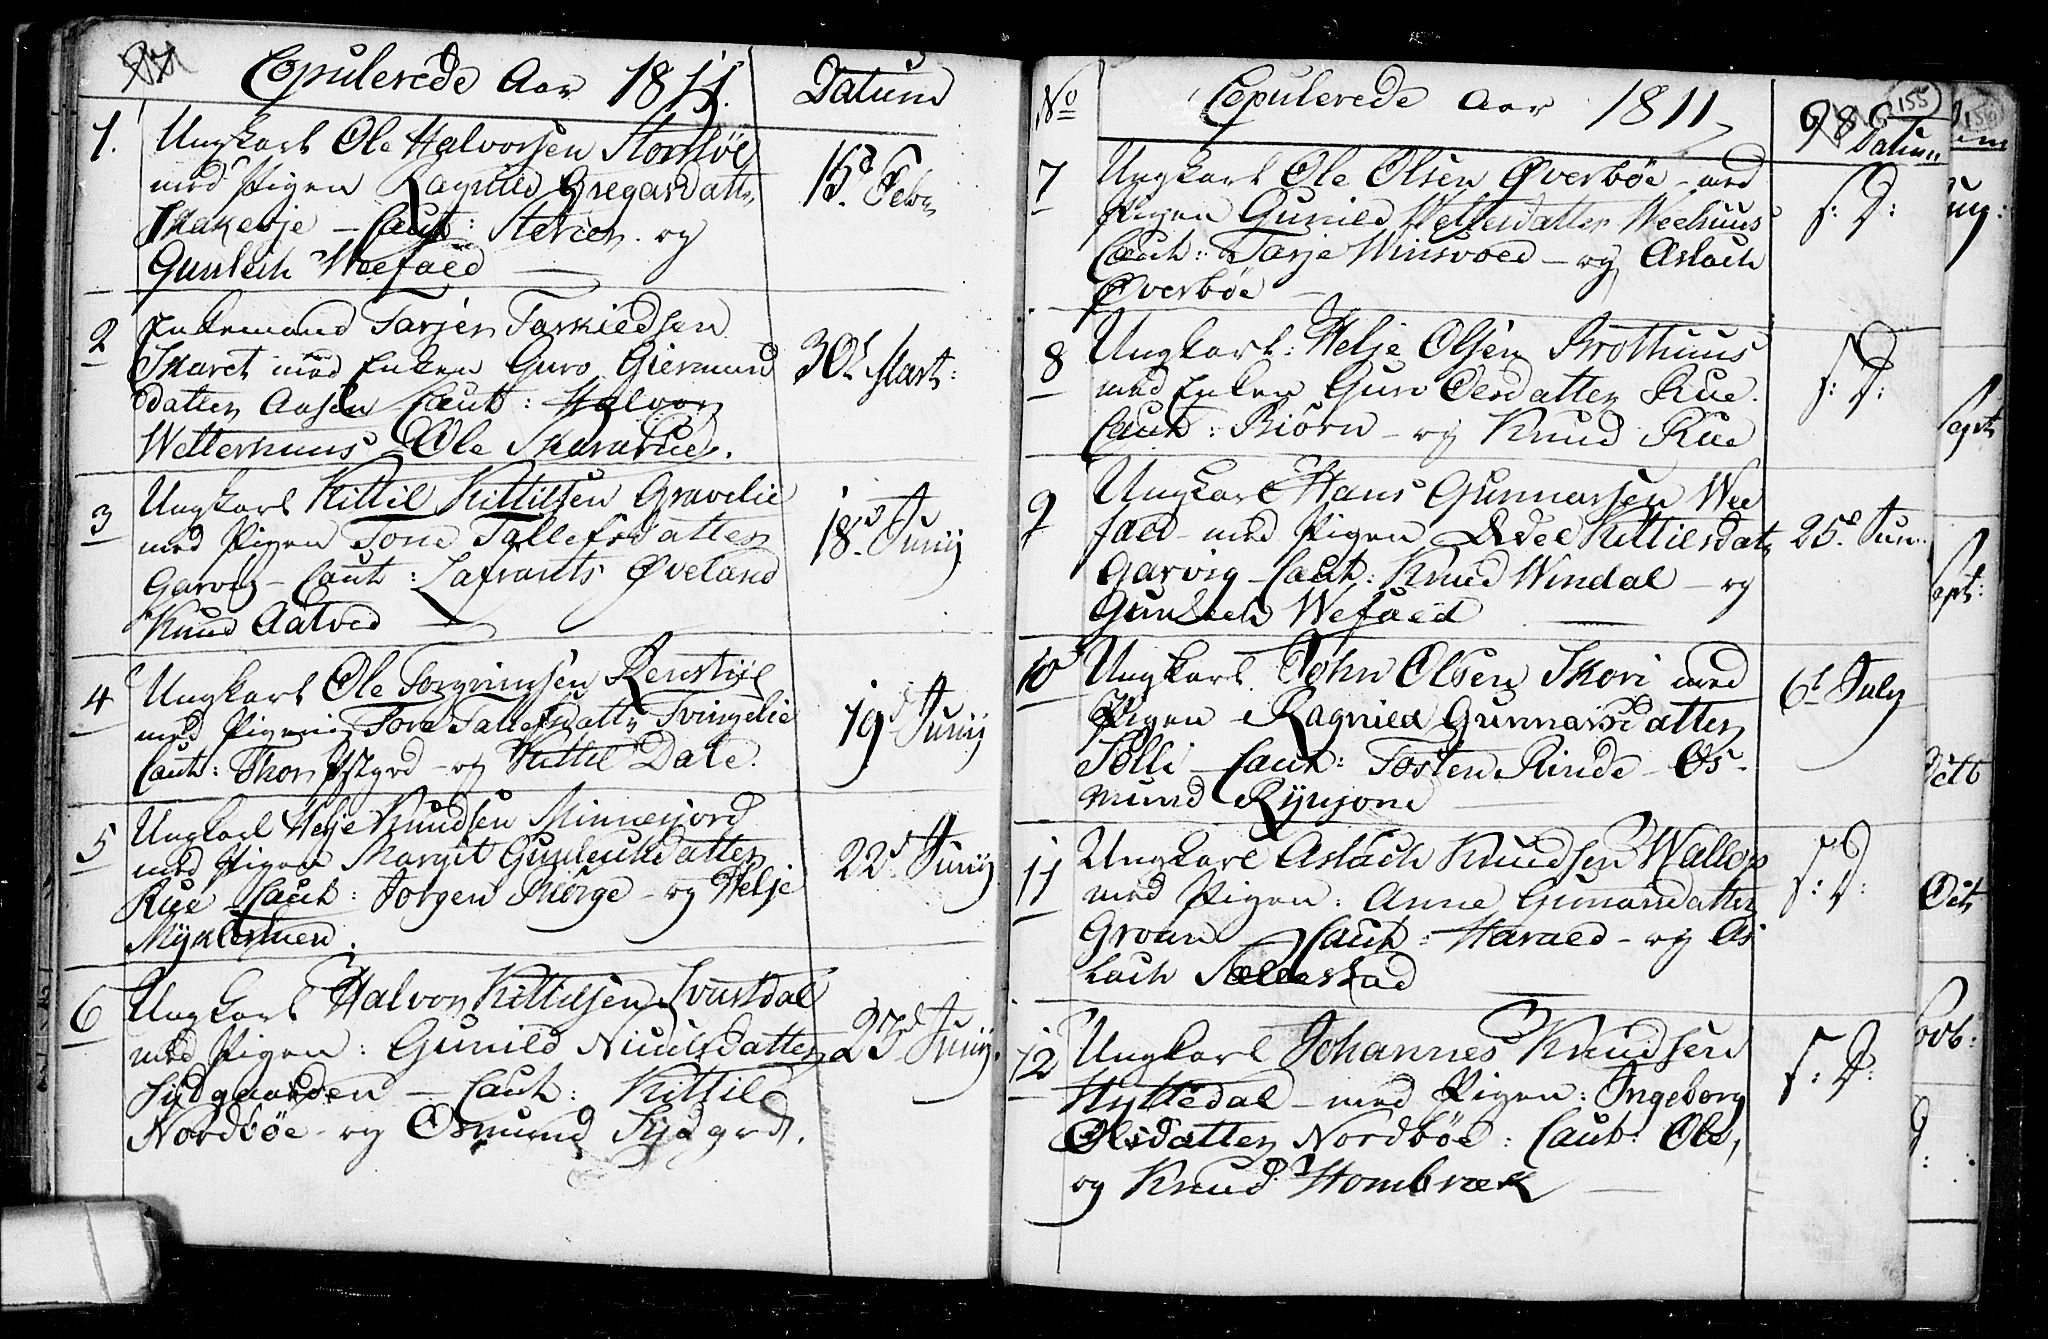 Copulerede Aar 1811. Datum
1. Ungkarl Ole Halvorsen Storbøe
med Pigen Ragnild Gregarsdatter
Skakesje – Caut: Stener og
Gunleik Weefald
15d Febr
2 Enkemand Tarjer Tarkieldsen
Skaret med Enken Guro Giermund
datter Aasen Caut: Halvor
Wetterhuus Ole Skararud.
30t Mart:
3 Ungkarl Kittil Kittilsen Gravelie
med Pigen Tone Tallefsdatter
Garvig – Caut: Lafrants Øveland
Knud Aatved
18d Junij
4 Ungkarl Ole Torgrimsen
med Pigen Tore Tallefsdatter Tvingelie
Caut: Thor – og Kittil Dale.
19d Junij
5 Ungkarl Helje Knudsen Minnesjord
med Pigen Margit Gunleiksdatter
Rue Caut: Jorgen Skorge – og Helje
Myklestuen.
22d Junij
6 Ungkarl Halvor Kittilsen
med Pigen: Gunild Niculsdatter
Sydgaarden – Caut: Kittil
Nordbøe – og Osmund Sydgrd.
23d Junij.
No Copulerede Aar 1811 Datum
155
7 Ungkarl Ole Olsen Øverbøe – med
Pigen Gunild Wettersdatter Weehuus
Caut: Tarje Winsvold – og Aslach
Øverbøe
s: D:
8 Ungkarl: Helje Olsen Brothuus
med Enken Guro Olsdatter Rue.
Caut: Biörn – og Knud Rue
s: D:
9 Ungkarl Hans Gunnarsen Wee
fald – med Pigen Kittilsdat
Garvig Caut: Knud Windal – og
Gunleich Wefald
25d Jun.
10 Ungkarl John Olsen Skori med
Pigen Ragnild Gunnarsdatter
Solli – Caut: Tosten Rinde – Os-
mund Rynjom
6t July
11 Ungkarl Aslach Knudsen Wallop
med Pigen: Anne Gunnarsdatter
Groun Caut: Harald – og As
lach Sælestad
s: D:
12 Ungkarl Johannes Knudsen
Hyttedal – med Pigen: Ingeborg
Olsdatter Nordbøe: Caut: Ole,
og Knud Hombræk
s: D: